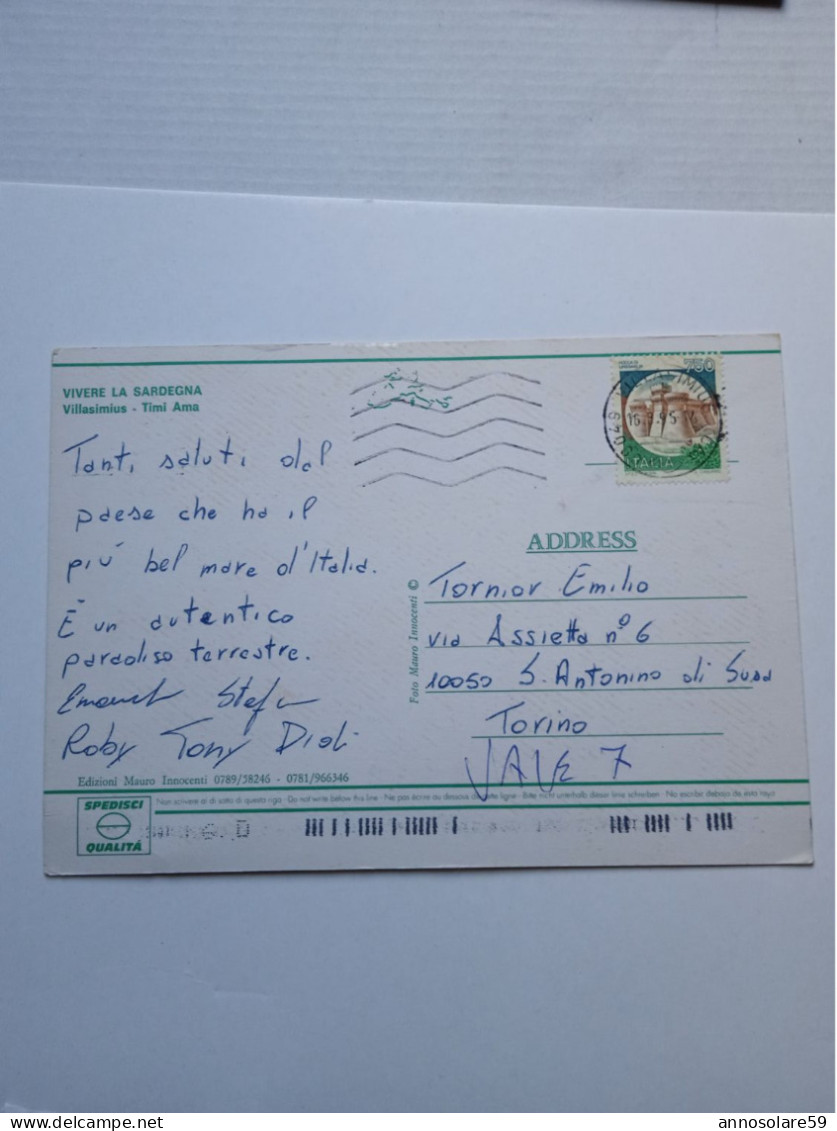 VIVERE LA SARDEGNA
Villasimius - Timi Ama
Tanti saluti dal
paese che ha il
più bel mare d'Italia.
È un autentico
paradiso terrestre.
Stefan
Roby Tony Didi
Edizioni Mauro Innocenti 0789/58246 - 0781/966346
SPEDISCI
QUALITÁ
Non scrivere al di sotto di questa riga - Do not write below this line - Ne pas écrire au dessous de cette ligne - Bitte nicht unterhalb dieser linie schreiben - No escribir debajo de esta raya
Foto Mauro Innocenti ©
750
ITALIA
ADDRESS
Tornior Emilio
via Assietta n° 6
10050 S. Antonino di Susa
Torino
annosolare59